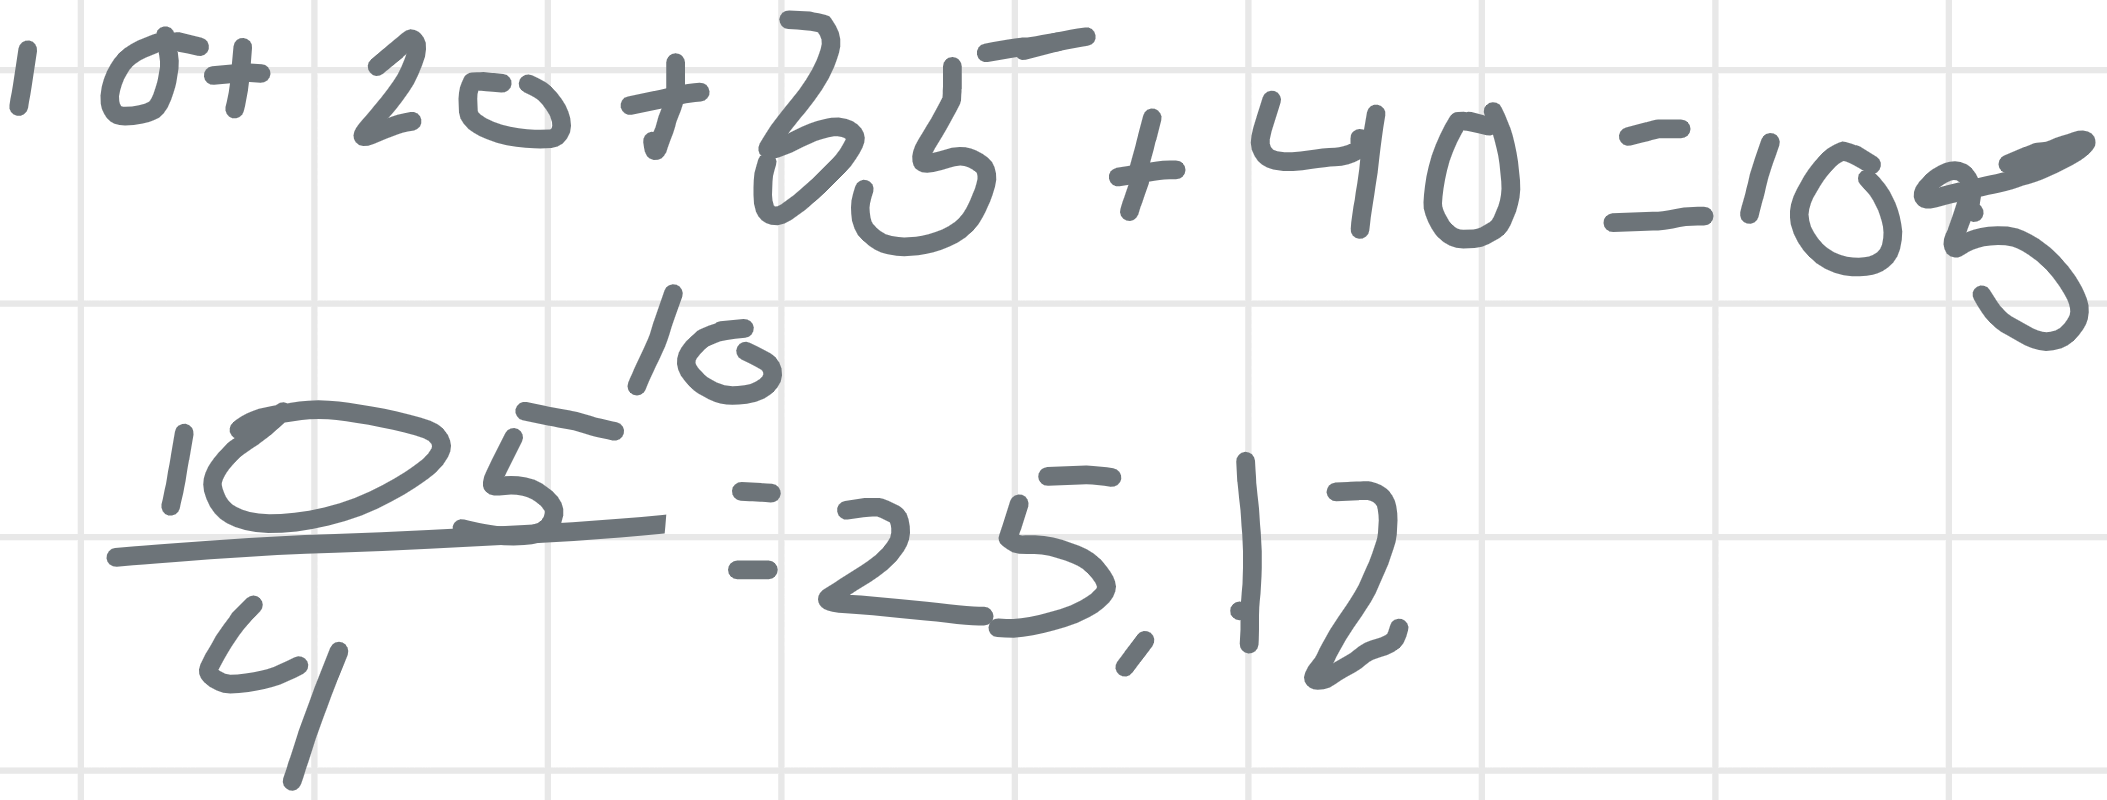 10 + 20 + 35 + 40 = 105
105 10 / 4 = 25,12